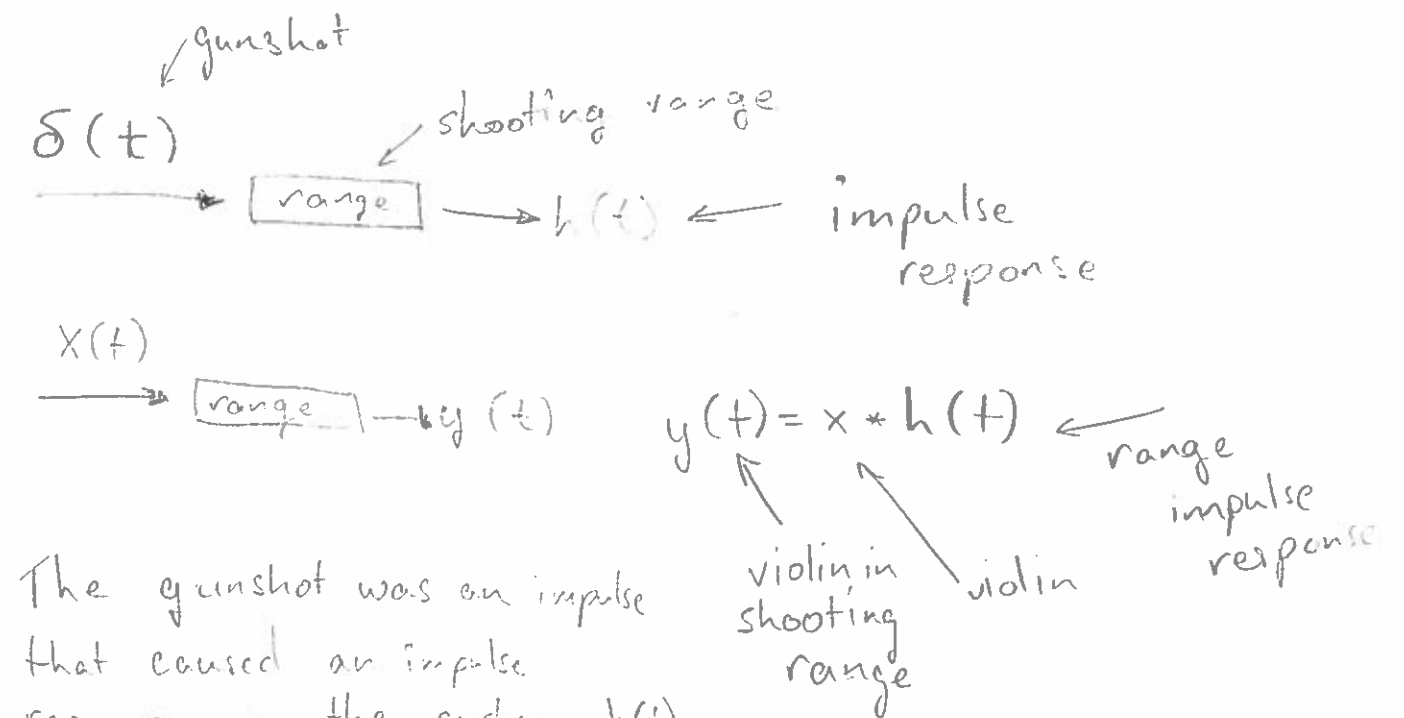 gunshot
δ(t)
shooting range
range
h(t)
impulse
response
X(t)
range
y(t)
y(t) = x * h(t)
range
impulse
response
violin in
shooting
range
violin
The gunshot was an impulse
that caused an impulse
the h(t)